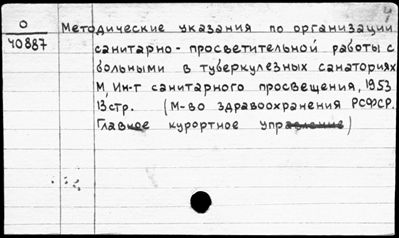 О
40887
Методические указания по организации
санитарно-просветительной работы с
больными в туберкулезных санаториях
М, Ин-т санитарного просвещения, 1953
13 стр. (М-во здравоохранения РСФСР.
Главное курортное управление)